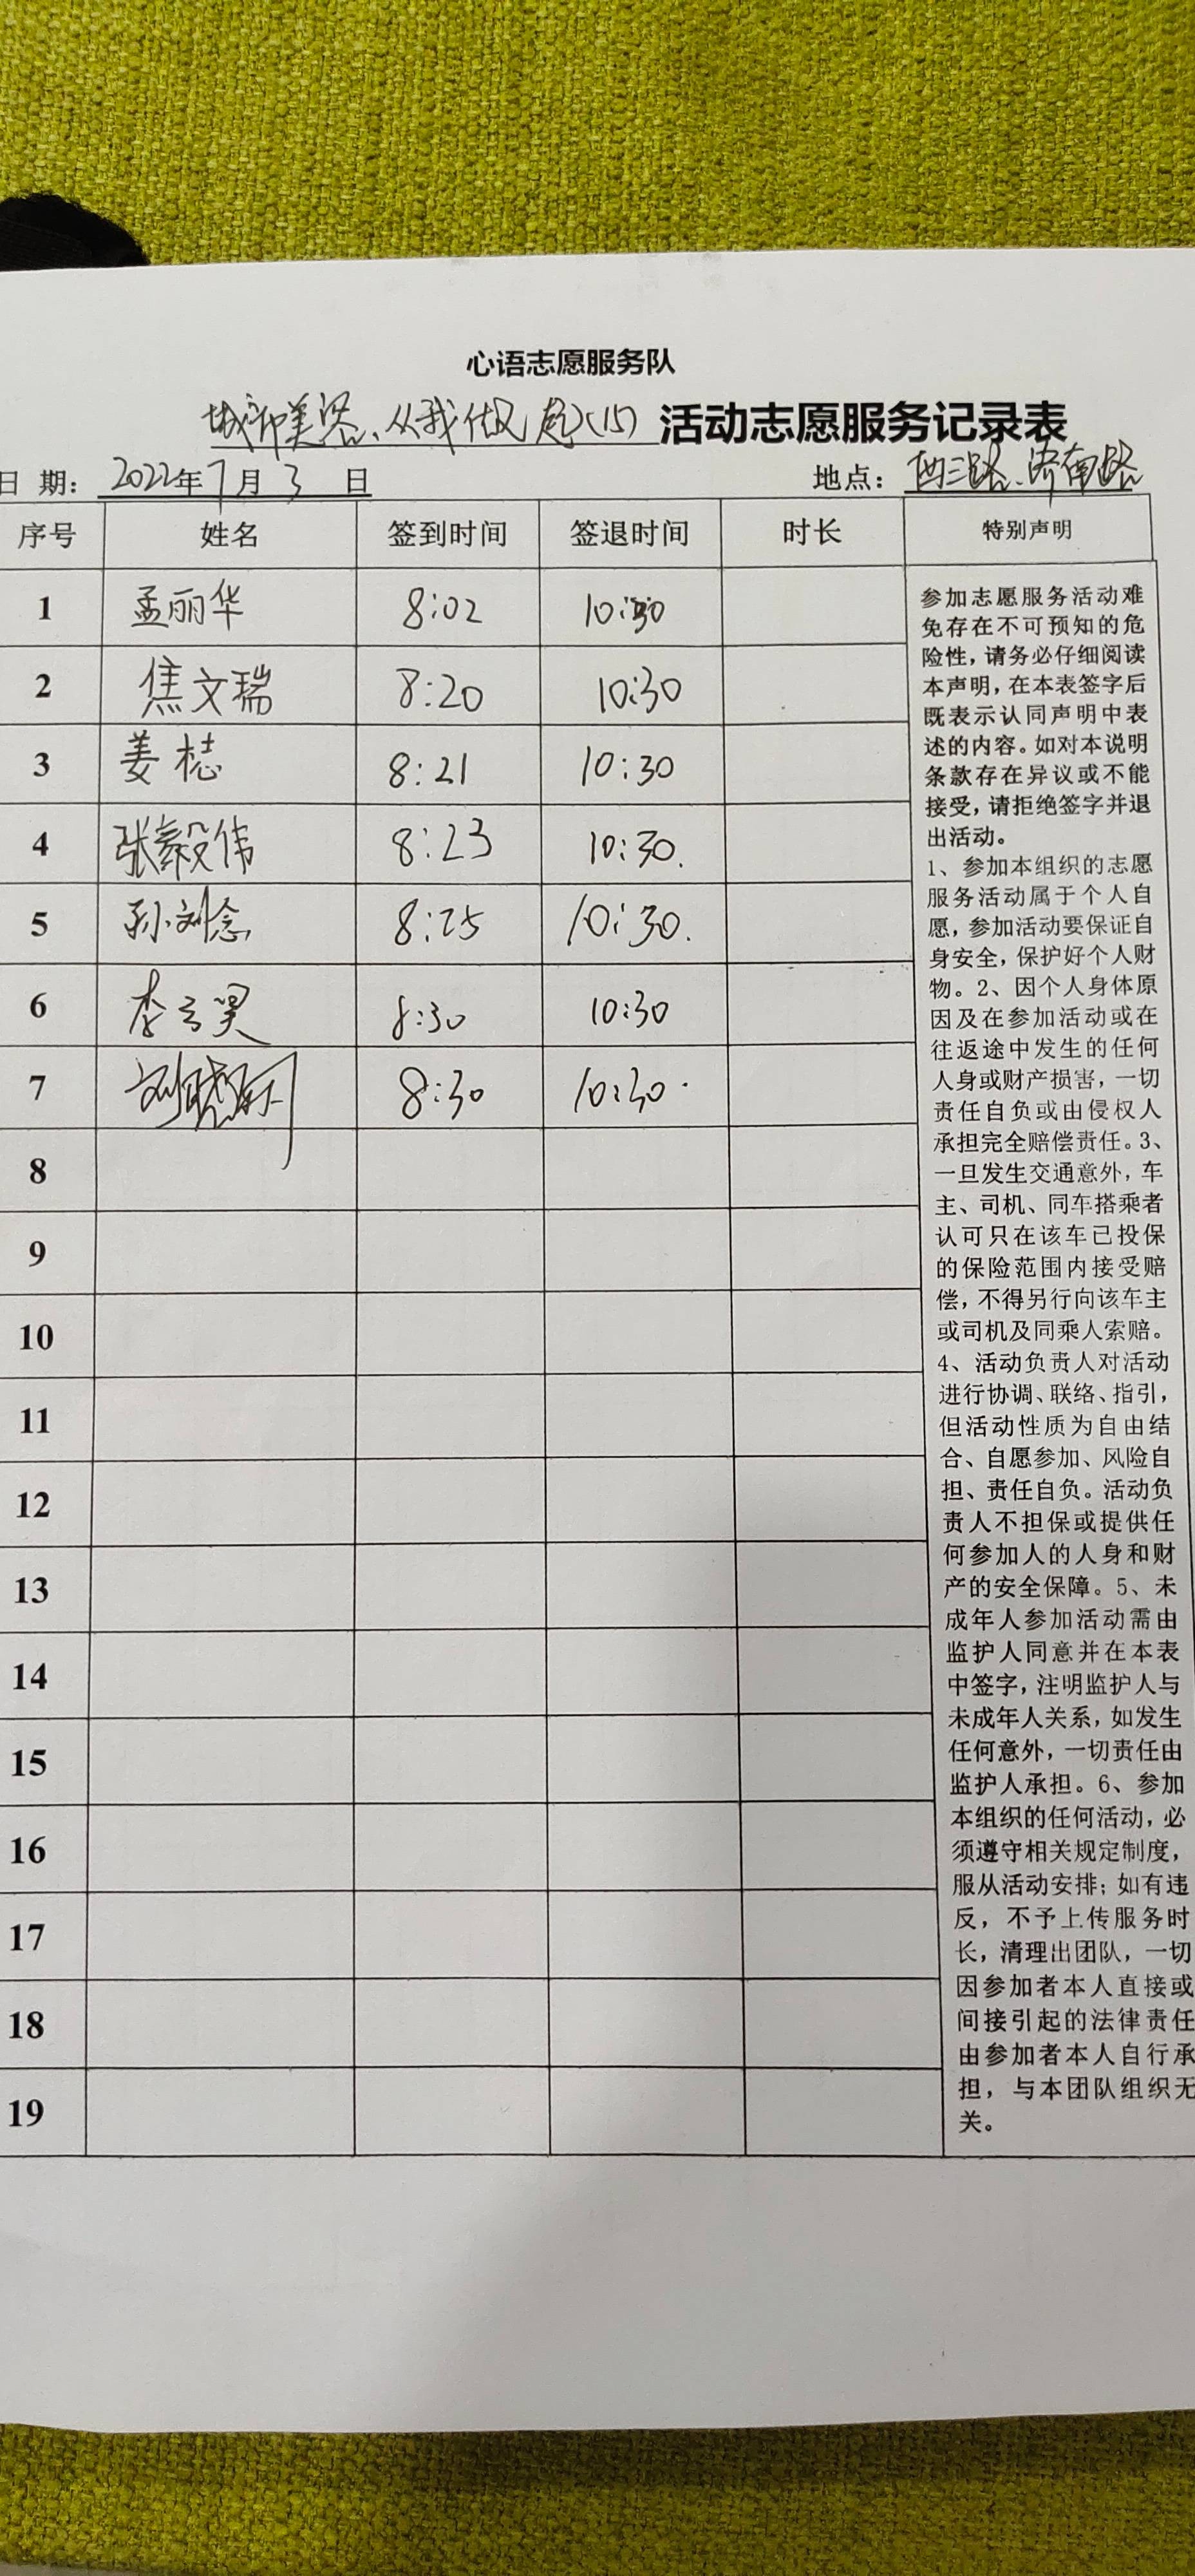 心语志愿服务队
城市美容、从我做起(15) 活动志愿服务记录表
日 期: 2022年7月3日 地点: 西三路、济南路
序号 姓名 签到时间 签退时间 时长 特别声明
1 孟丽华 8:02 10:30
2 焦文瑞 8:20 10:30
3 姜梽 8:21 10:30
4 张毅伟 8:23 10:30.
5 孙刘念 8:25 10:30.
6 李云昊 8:30 10:30
7 8:30 10:30.
8
9
10
11
12
13
14
15
16
17
18
19
参加志愿服务活动难
免存在不可预知的危
险性,请务必仔细阅读
本声明,在本表签字后
既表示认同声明中表
述的内容。如对本说明
条款存在异议或不能
接受,请拒绝签字并退
出活动。
1、参加本组织的志愿
服务活动属于个人自
愿,参加活动要保证自
身安全,保护好个人财
物。2、因个人身体原
因及在参加活动或在
往返途中发生的任何
人身或财产损害,一切
责任自负或由侵权人
承担完全赔偿责任。3、
一旦发生交通意外,车
主、司机、同车搭乘者
认可只在该车已投保
的保险范围内接受赔
偿,不得另行向该车主
或司机及同乘人索赔。
4、活动负责人对活动
进行协调、联络、指引,
但活动性质为自由结
合、自愿参加、风险自
担、责任自负。活动负
责人不担保或提供任
何参加人的人身和财
产的安全保障。5、未
成年人参加活动需由
监护人同意并在本表
中签字,注明监护人与
未成年人关系,如发生
任何意外,一切责任由
监护人承担。6、参加
本组织的任何活动,必
须遵守相关规定制度,
服从活动安排;如有违
反,不予上传服务时
长,清理出团队,一切
因参加者本人直接或
间接引起的法律责任
由参加者本人自行承
担,与本团队组织无
关。